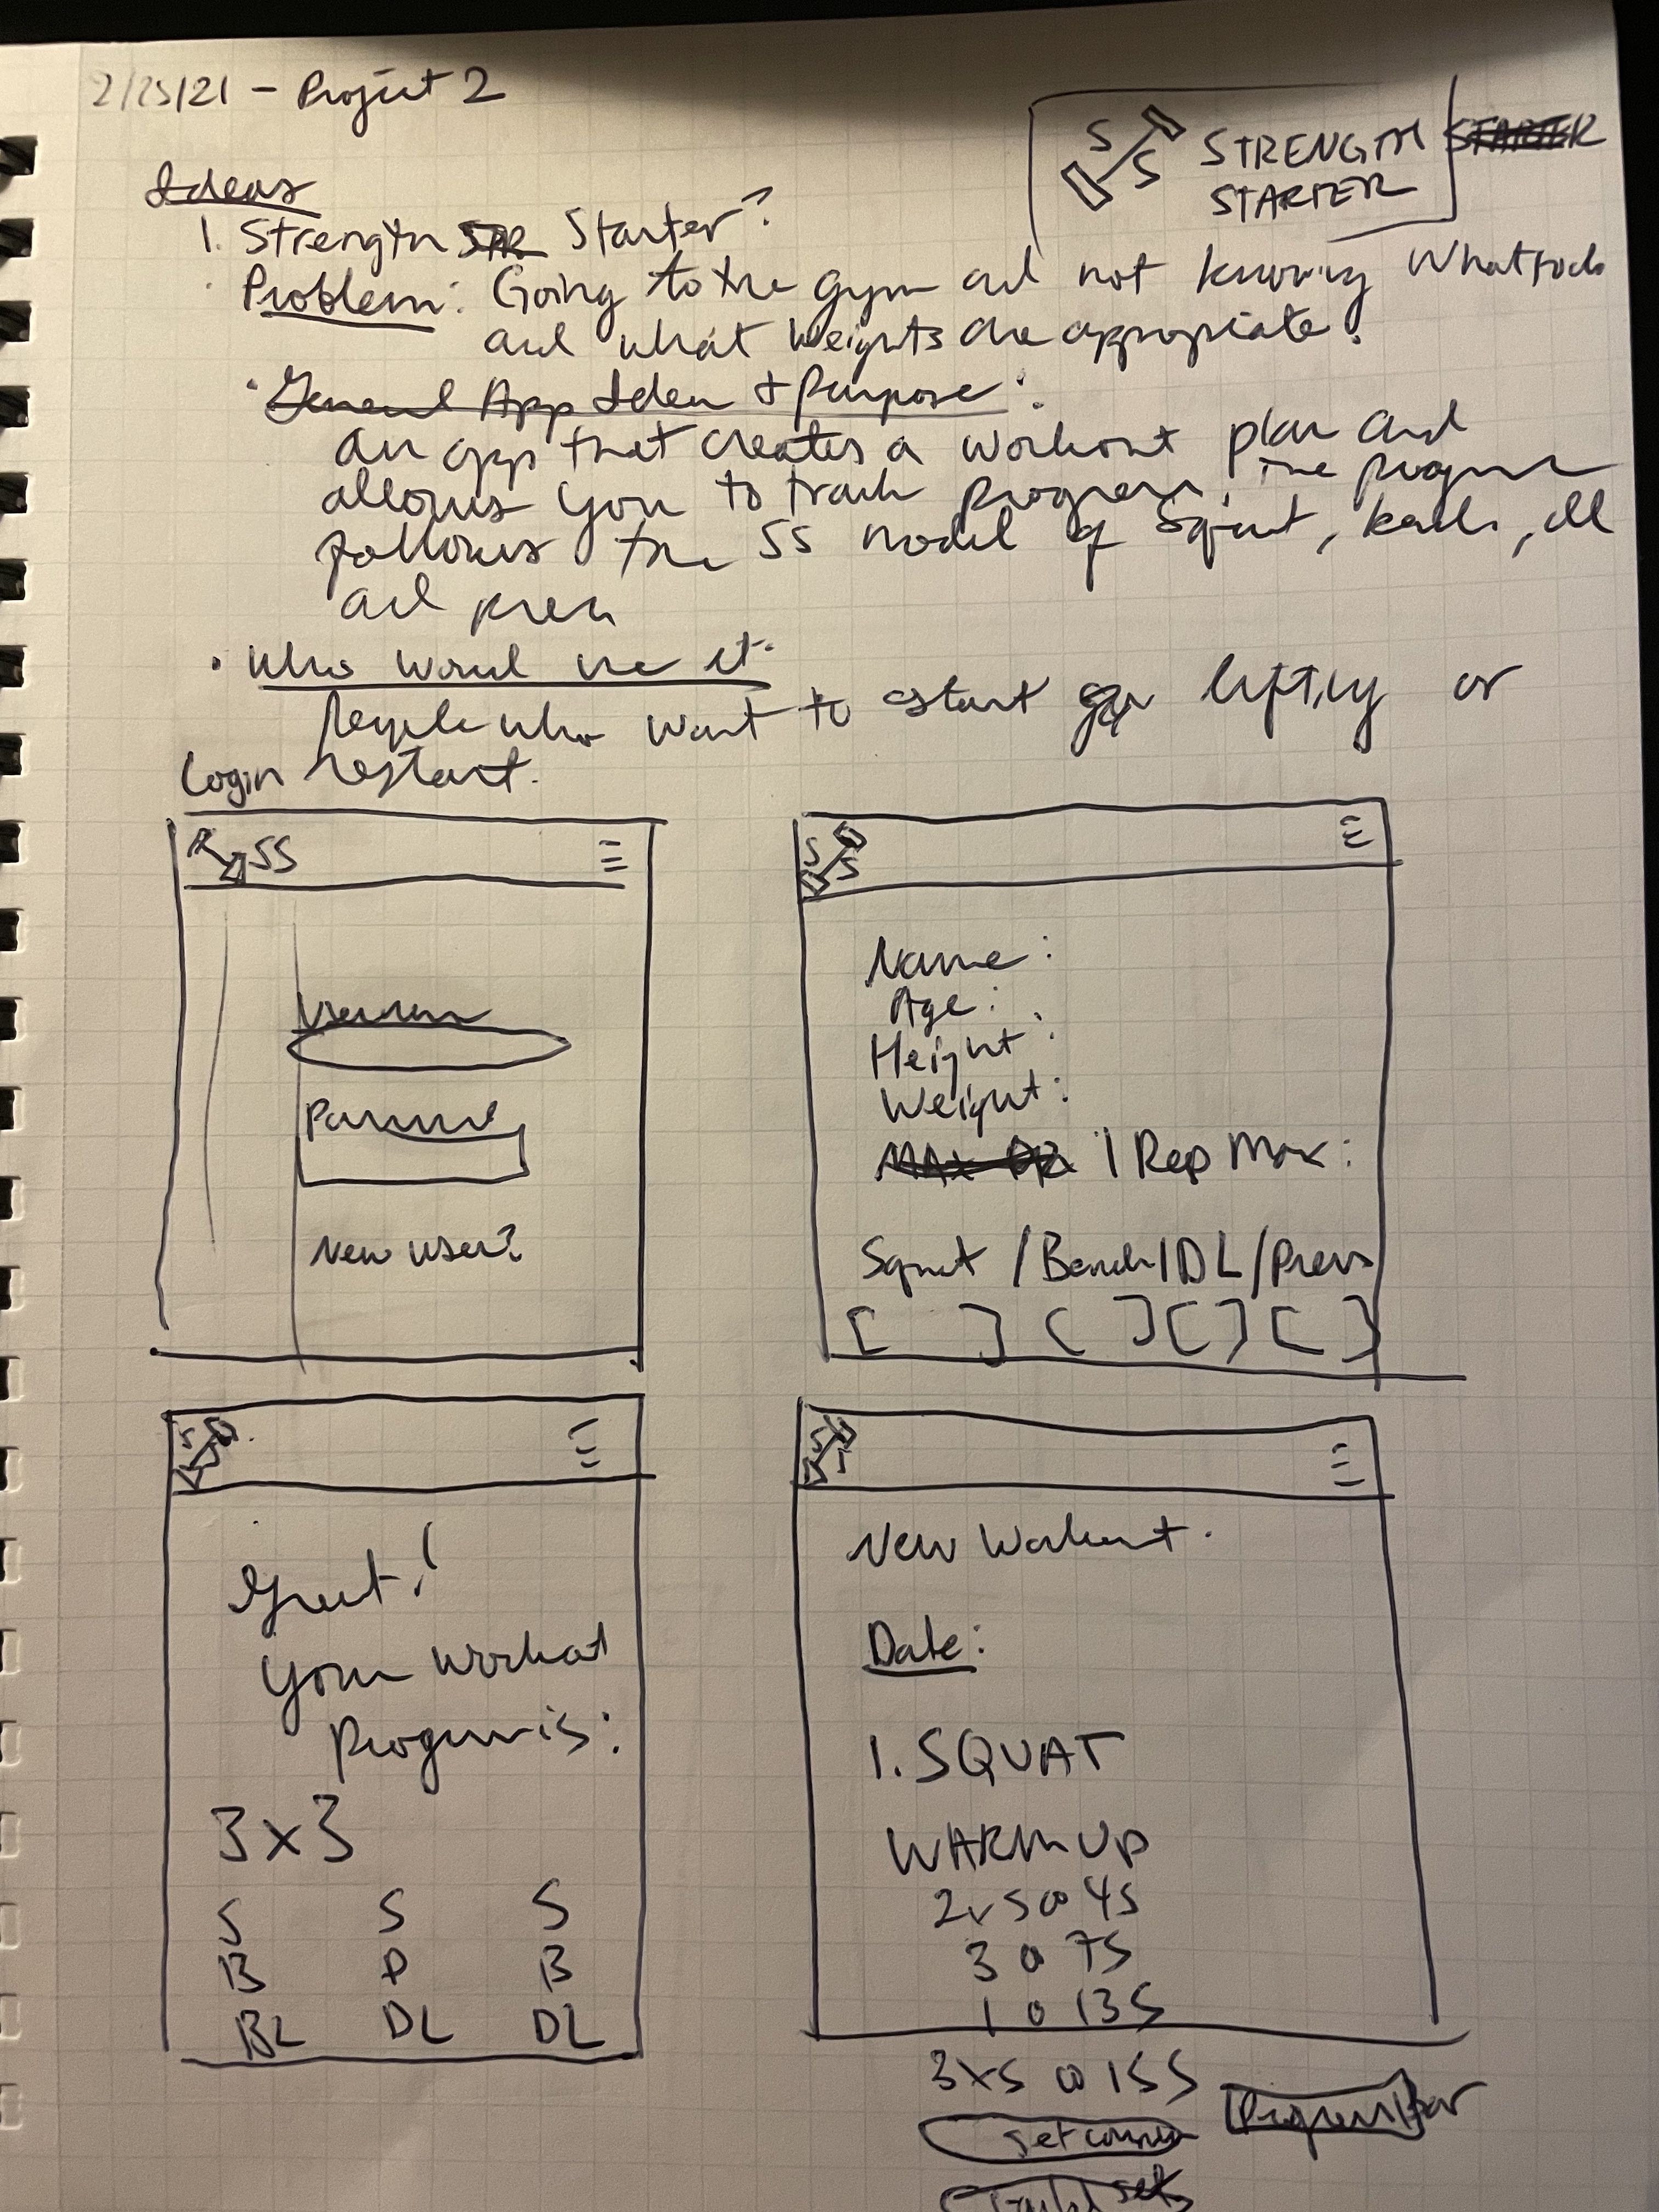 2/25/21 - Project 2
S S STRENGTH STARTER
STARTER
Ideas
1. Strength Starter?
Problem: Going to the gym and not knowing what to do
and what weights are appropriate.
General App Idea + Purpose:
an app that creates a workout plan and
allows you to track progress, the program
follows the SS model of Squat, bench, dl
and press
Who would use it:
People who want to start lifting or
restart.
Login
SS
Username
Password
New user?
S S
Name:
Age:
Height:
Weight:
1 Rep Max:
Squat / Bench / DL / Press
[ ] [ ] [ ] [ ]
S S
Great!
Your workout
Program is:
3x3
S S S
B P B
DL DL
S S
New Workout.
Date:
1. SQUAT
WARM UP
2x5 @ 45
3 @ 75
1 @ 135
3x5 @ 155
Progress Bar
set
set